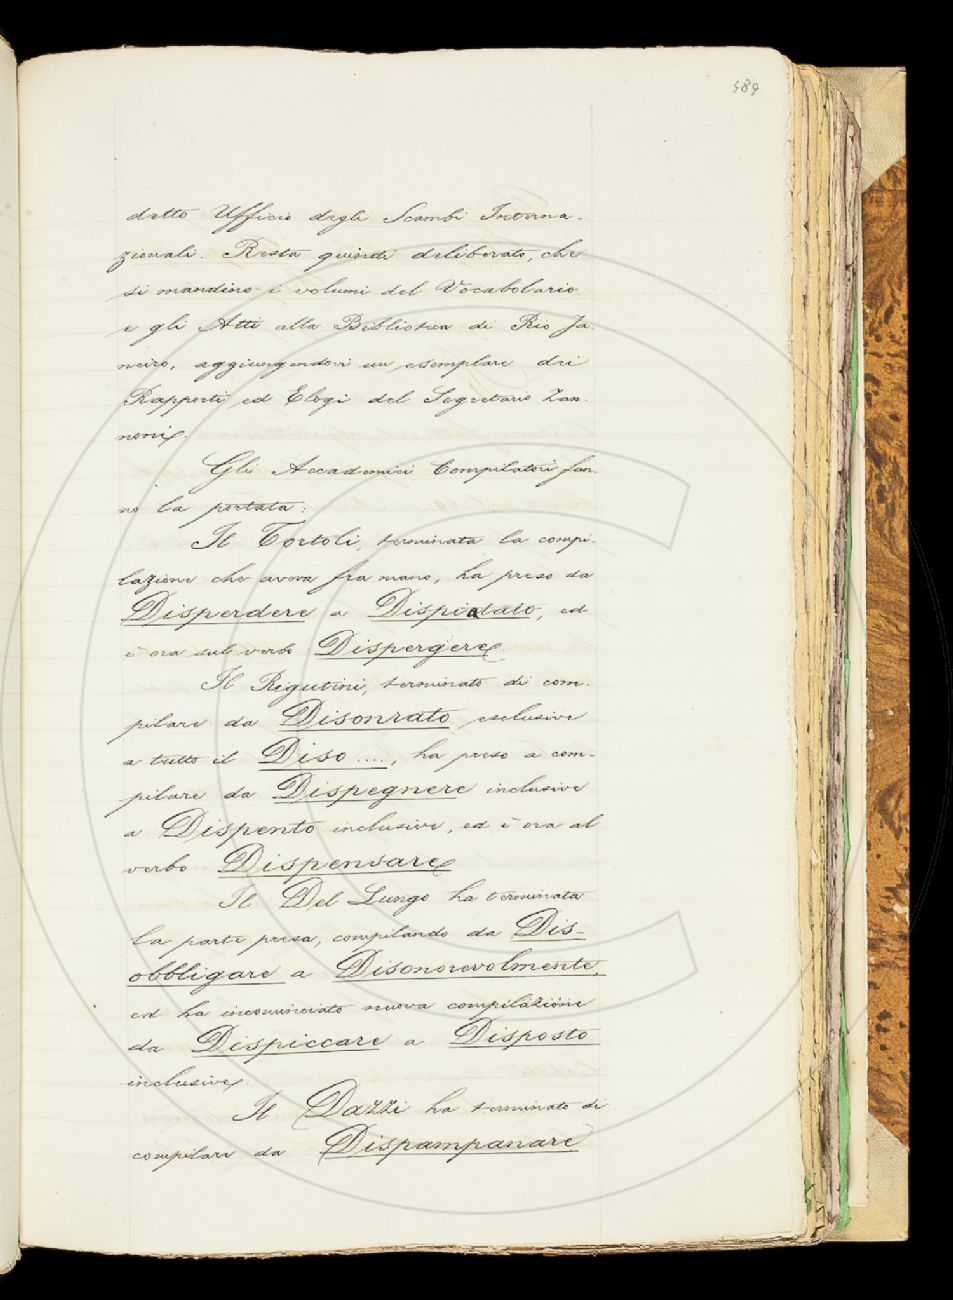 489
detto Ufficio degli Scambi Interna-
zionali. Resta quindi deliberato, che
si mandino i volumi del Vocabolario
e gli Atti alla Biblioteca di Rio Ja
neiro, aggiungendovi un esemplare dei
Rapporti ed Elogi del Segretario Zan-
noni.
Gli Accademici Compilatori fan-
no la portata:
Il Tortoli, terminata la compi-
lazione che aveva fra mano, ha preso da
Disperdere a Dispietato, ed
è ora sul verbo Dispergere
Il Rigutini, terminato di com-
pilare da Disonrato esclusive
a tutto il Diso ...., ha preso a com-
pilare da Dispegnere inclusive
a Dispento inclusive, ed è ora al
verbo Dispensare
Il Del Lungo ha terminata
la parte presa, compilando da Dis-
obbligare a Disonorevolmente,
ed ha incominciato nuova compilazione
da Dispiccare a Disposto
inclusive.
Il Dazzi ha terminato di
compilare da Dispampanare